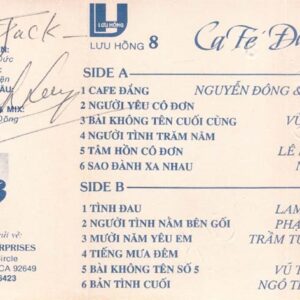 Jack
LƯU HỒNG 8
CaFé Đ
SIDE A
1 CAFE ĐẮNG NGUYỄN ĐÔNG &
2 NGƯỜI YÊU CÔ ĐƠN
3 BÀI KHÔNG TÊN CUỐI CÙNG VŨ
4 NGƯỜI TÌNH TRĂM NĂM
5 TÂM HỒN CÔ ĐƠN LÊ
6 SAO ĐÀNH XA NHAU N
SIDE B
1 TÌNH ĐAU LAM
2 NGƯỜI TÌNH NẰM BÊN GỐI PHẠ
3 MƯỜI NĂM YÊU EM TRẦM TỬ
4 TIẾNG MƯA ĐÊM
5 BÀI KHÔNG TÊN SỐ 5 VŨ T
6 BẢN TÌNH CUỐI NGÔ T
& MIX:
ERPRISES
ircle
CA 92649
6423